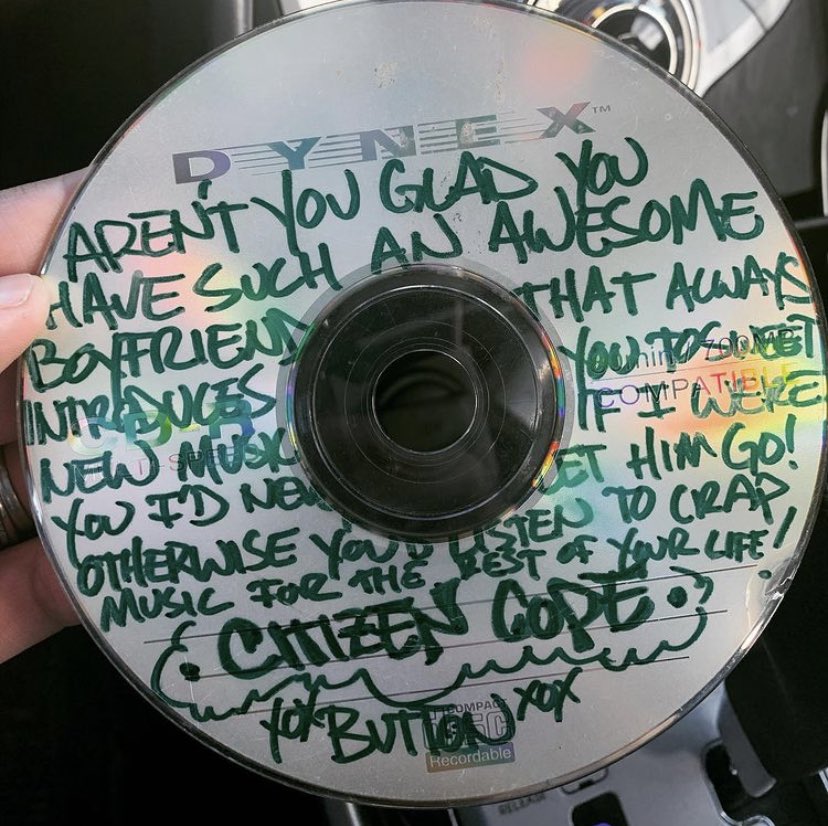 DYNEX™
AREN'T YOU GLAD YOU
HAVE SUCH AN AWESOME
BOYFRIEND THAT ALWAYS
INTRODUCES YOU TO SWEET
NEW MUSIC IF I WERE
YOU I'D NEV LET HIM GO!
OTHERWISE YOU'D LISTEN TO CRAP
MUSIC FOR THE REST OF YOUR LIFE!
700MB
COMPATIBLE
CITIZEN COPE
XOX BUTTON XOX
COMPACT
disc
Recordable
RELEASE